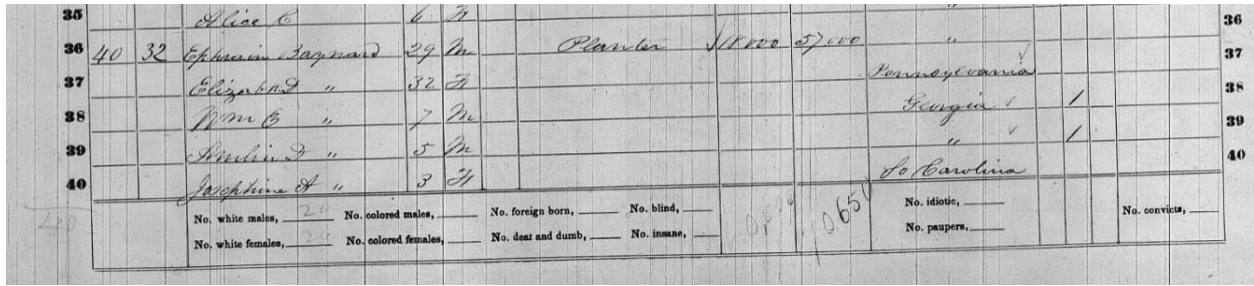 35 Alice C 6 F 36
36 40 32 Ephraim Baynard 29 M Planter 18000 57000 "
37 Elizabeth " 32 F Pennsylvania 37
38 Wm E " 7 M Georgia 1 38
39 " 5 M " 1 39
40 Josephine A " 3 F So Carolina 40
40
No. white males, 20 No. colored males, No. foreign born, No. blind, No. idiotic, No. convicts,
No. white females, 20 No. colored females, No. deaf and dumb, No. insane, No. paupers,